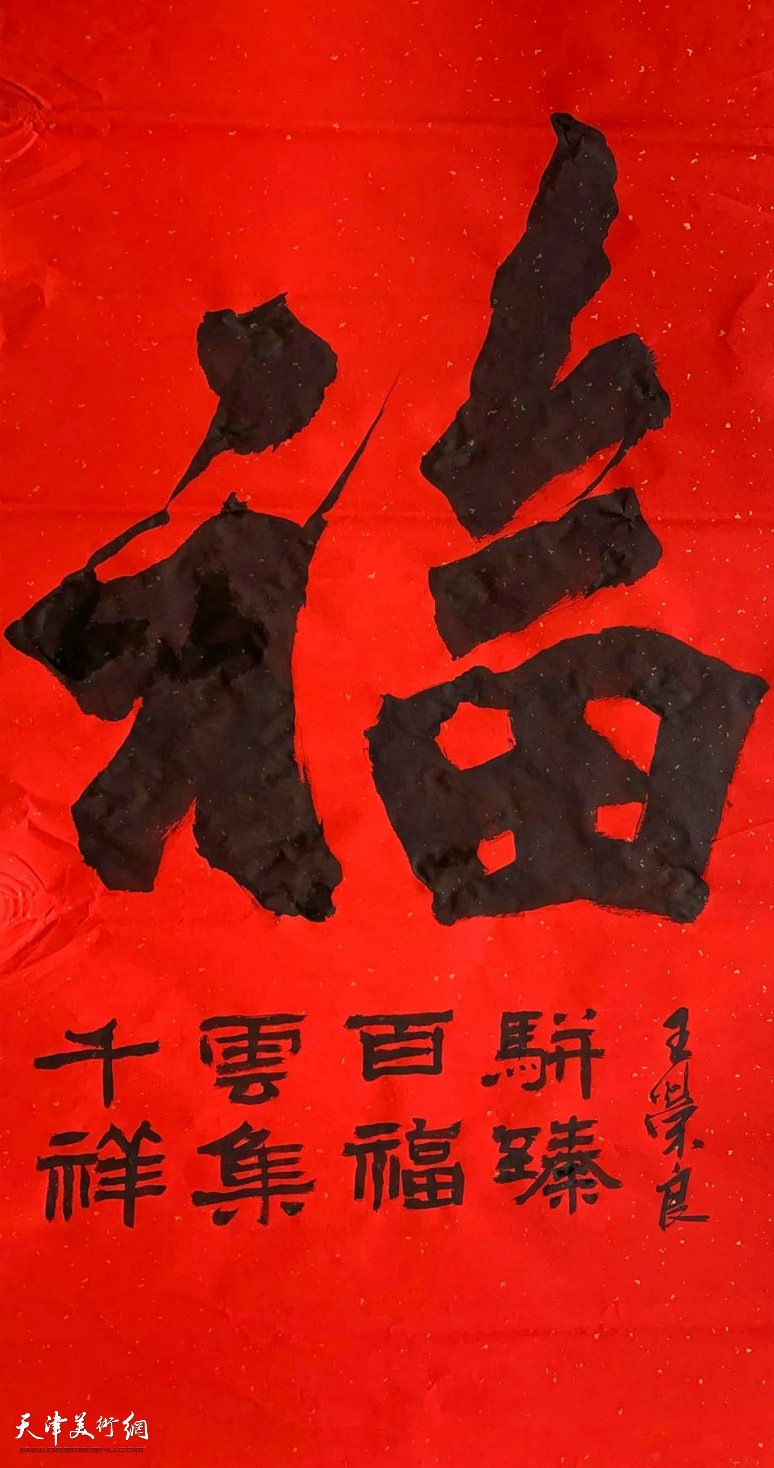 福
千祥
雲集
百福
駢臻
王榮良
天津美術網